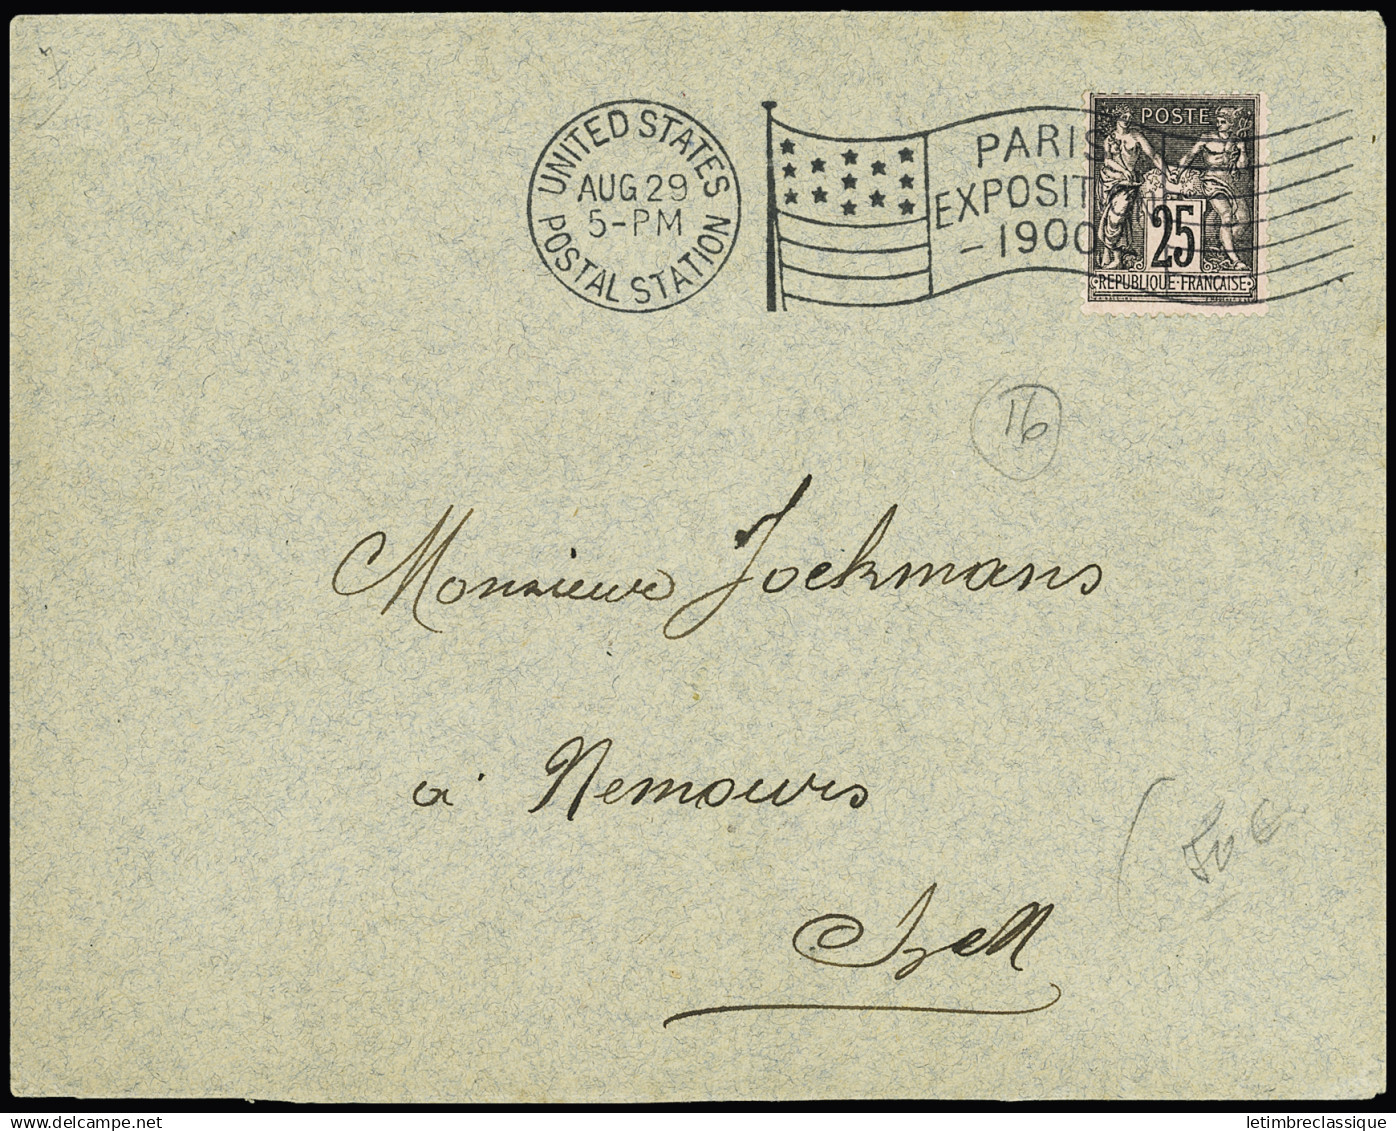 UNITED STATES
POSTAL STATION
AUG 29
5-PM
PARIS
EXPOSIT
- 1900
POSTE
25
RÉPUBLIQUE·FRANÇAISE
16
Monsieur Jockmans
à Nemours
50 €
delcampe.net
letimbreclassique